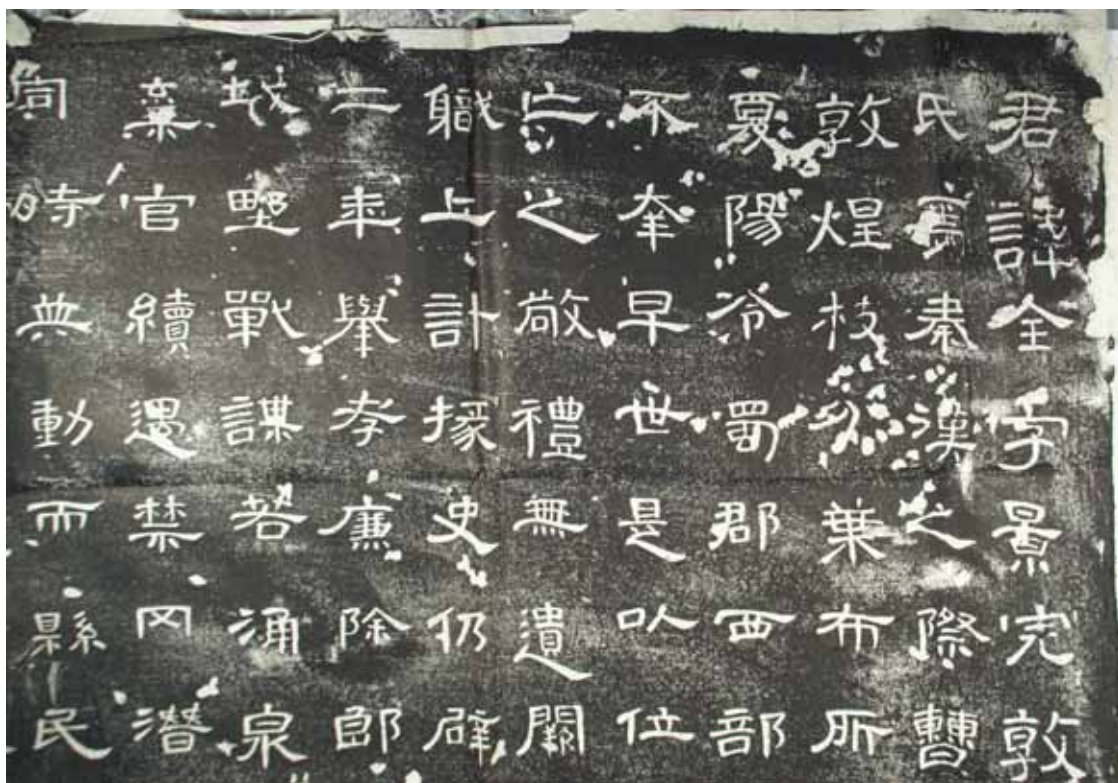 君諱全字景完敦
氏焉秦漢之際曹
敦煌枝分葉布所
夏陽令蜀郡西部
不幸早世是以位
亡之敬禮無遺闕
職上計掾史仍辟
二年舉孝廉除郎
城野戰謀若涌泉
棄官續遇禁冈潛
同時並動而縣民